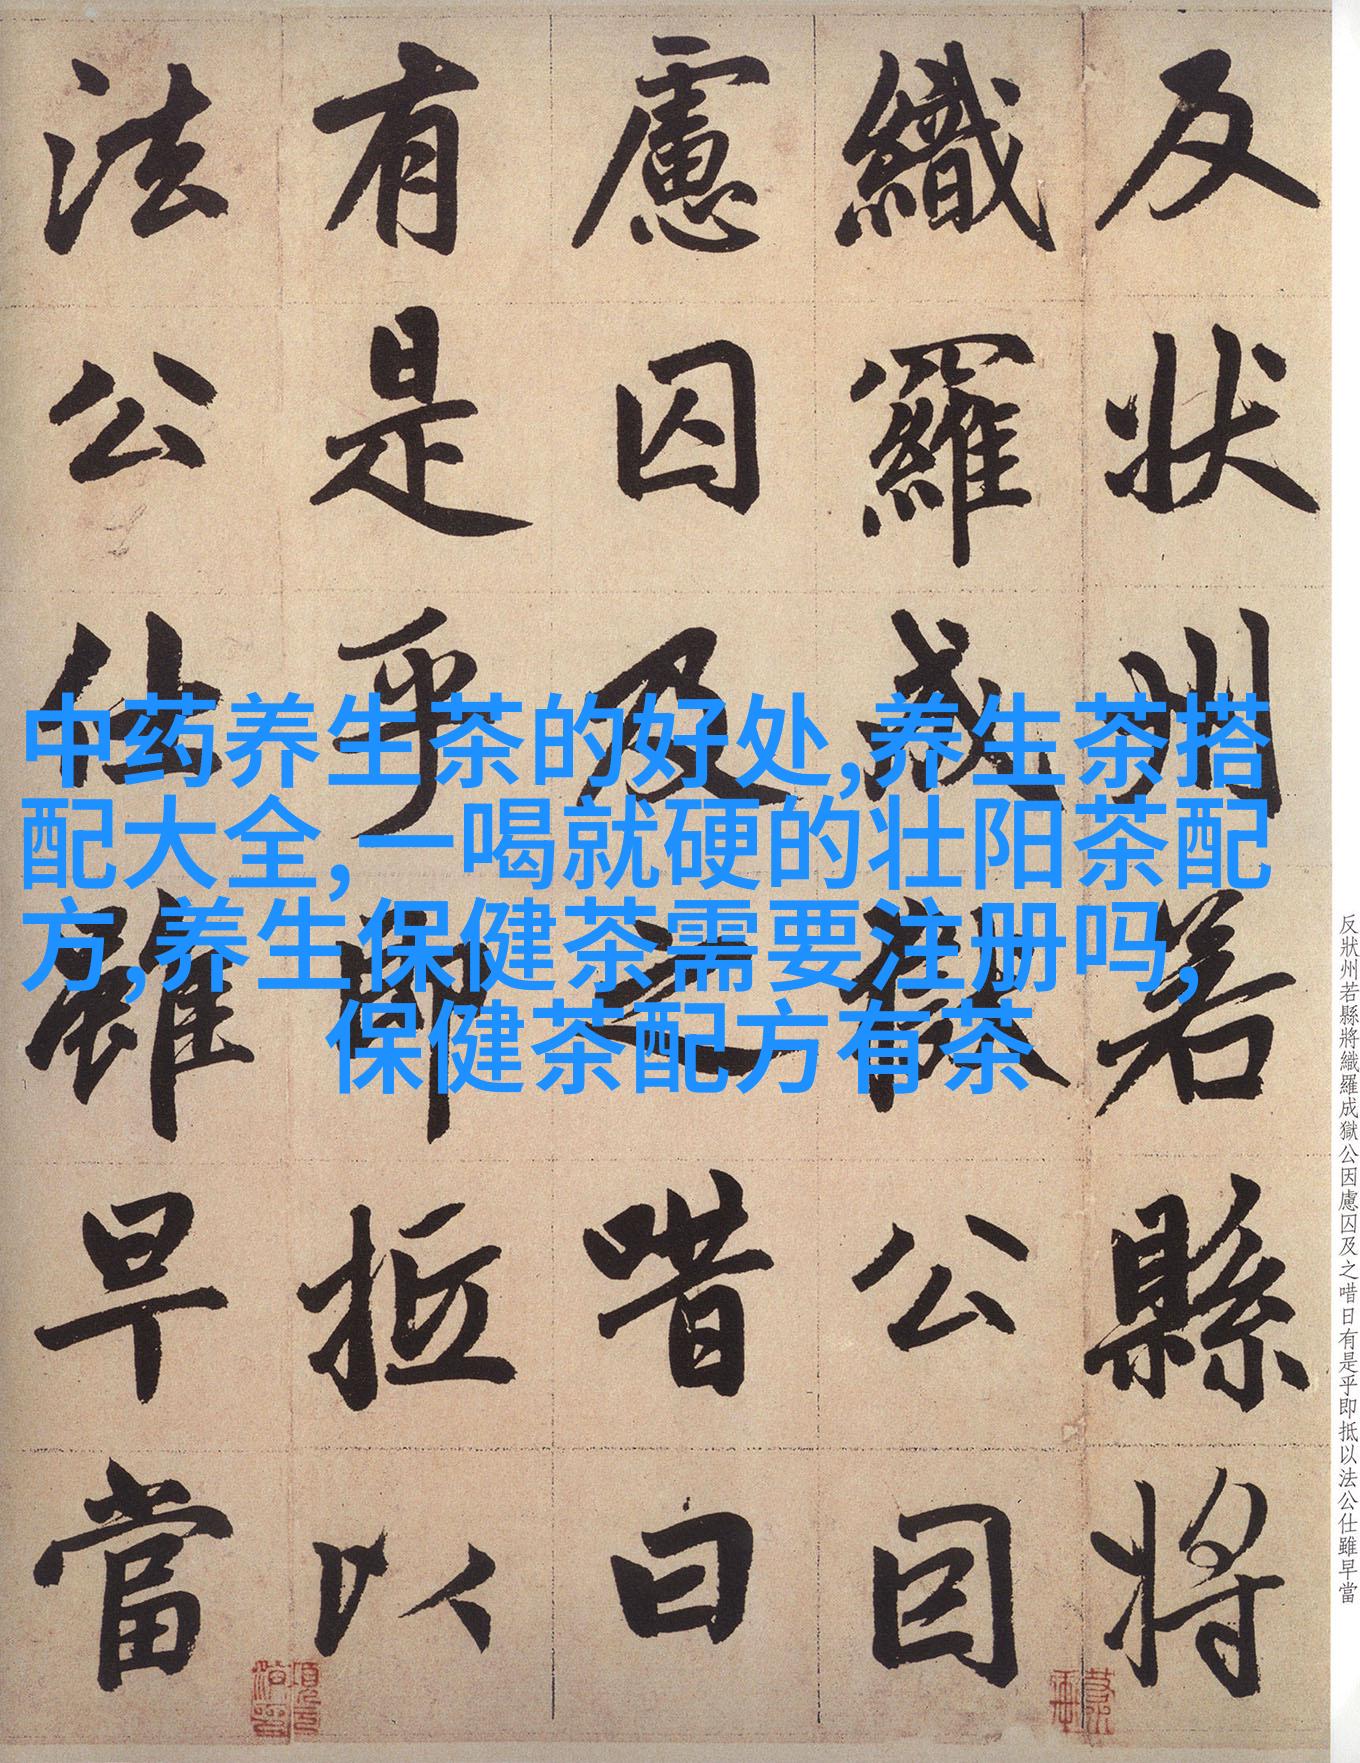 反状州若縣將
織羅成獄公因
慮囚及之唶曰
有是乎即抵以
法公仕雖早當
中药养生茶的好处,养生茶搭
配大全,一喝就硬的壮阳茶配
方,养生保健茶需要注册吗,
保健茶配方有茶
反狀州若縣將織羅成獄公因慮囚及之唶日有是乎即抵以法公仕雖早當